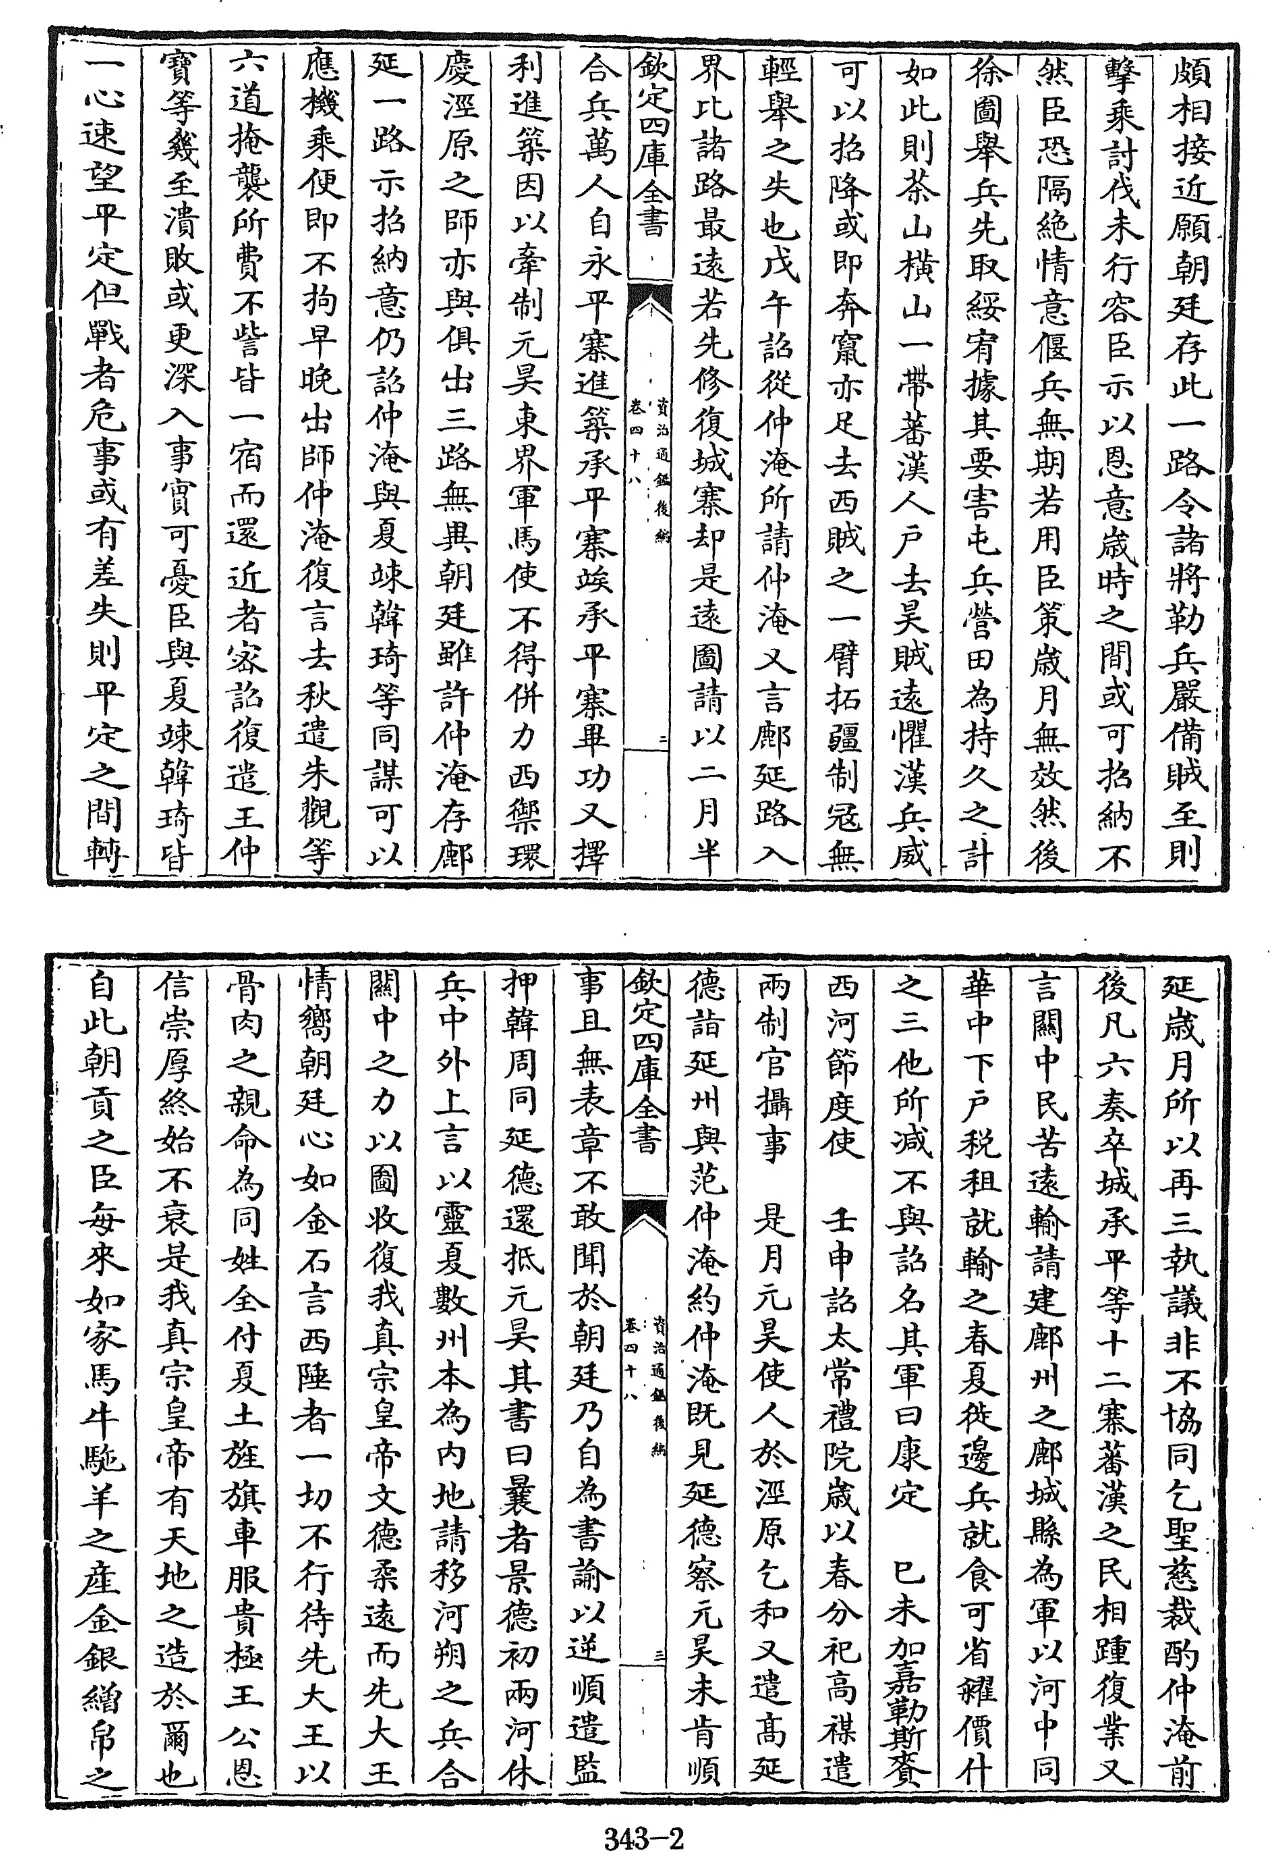 頗相接近願朝廷存此一路令諸將勒兵嚴備賊至則
擊乘討伐未行容臣示以恩意歳時之間或可招納不
然臣恐隔絶情意偃兵無期若用臣策歳月無效然後
徐圖舉兵先取綏宥據其要害屯兵營田為持久之計
如此則茶山橫山一帶蕃漢人戶去昊賊遠懼漢兵威
可以招降或即奔竄亦足去西賊之一臂拓疆制冦無
輕舉之失也戊午詔從仲淹所請仲淹又言鄜延路入
界比諸路最遠若先修復城寨却是遠圖請以二月半
欽定四庫全書
資治通鑑後編
卷四十八
二
合兵萬人自永平寨進築承平寨竢承平寨畢功又擇
利進築因以牽制元昊東界軍馬使不得併力西禦環
慶涇原之師亦與俱出三路無異朝廷雖許仲淹存鄜
延一路示招納意仍詔仲淹與夏竦韓琦等同謀可以
應機乘便即不拘早晚出師仲淹復言去秋遣朱觀等
六道掩襲所費不訾皆一宿而還近者宻詔復遣王仲
寶等幾至潰敗或更深入事實可憂臣與夏竦韓琦皆
一心速望平定但戰者危事或有差失則平定之間轉
延歳月所以再三執議非不協同乞聖慈裁酌仲淹前
後凡六奏卒城承平等十二寨蕃漢之民相踵復業又
言關中民苦遠輸請建鄜州之鄜城縣為軍以河中同
華中下戶税租就輸之春夏徙邊兵就食可省糴價什
之三他所減不與詔名其軍曰康定 已未加嘉勒斯賚
西河節度使 壬申詔太常禮院歳以春分祀高禖遣
兩制官攝事 是月元昊使人於涇原乞和又遣髙延
德詣延州與范仲淹約仲淹既見延德察元昊未肯順
欽定四庫全書
資治通鑑後編
卷四十八
三
事且無表章不敢聞於朝廷乃自為書諭以逆順遣監
押韓周同延德還抵元昊其書曰曩者景德初兩河休
兵中外上言以靈夏數州本為内地請移河朔之兵合
關中之力以圖收復我真宗皇帝文德柔遠而先大王
情嚮朝廷心如金石言西陲者一切不行待先大王以
骨肉之親命為同姓全付夏土旌旗車服貴極王公恩
信崇厚終始不衰是我真宗皇帝有天地之造於爾也
自此朝貢之臣每來如家馬牛駞羊之産金銀繒帛之
343-2